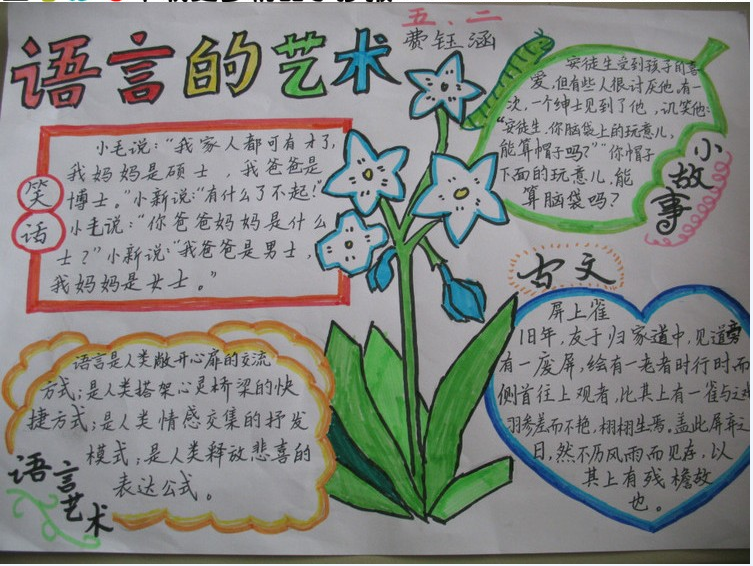 语言的艺术
五、二
费钰涵
笑话
小毛说：“我家人都可有才了，
我妈妈是硕士，我爸爸是
博士。”小新说：“有什么了不起！”
小毛说：“你爸爸妈妈是什么
士？”小新说：“我爸爸是男士，
我妈妈是女士。”
安徒生受到孩子们喜
爱，但有些人很讨厌他。有一
次，一个绅士见到了他，讥笑他：
“安徒生，你脑袋上的玩意儿，
能算帽子吗？”“你帽子
下面的玩意儿，能
算脑袋吗？
小故事
古文
屏上雀
旧年，友于归家道中，见道旁
有一废屏，绘有一老者时行时而
侧首往上观者，比其上有一雀与之
羽参差而不艳，栩栩生焉。盖此屏弃之
日，然不历风雨而见存，以
其上有残檐故
也。
语言是人类敞开心扉的交流
方式；是人类搭架心灵桥梁的快
捷方式；是人类情感交集的抒发
模式；是人类释放悲喜的
表达公式。
语言艺术